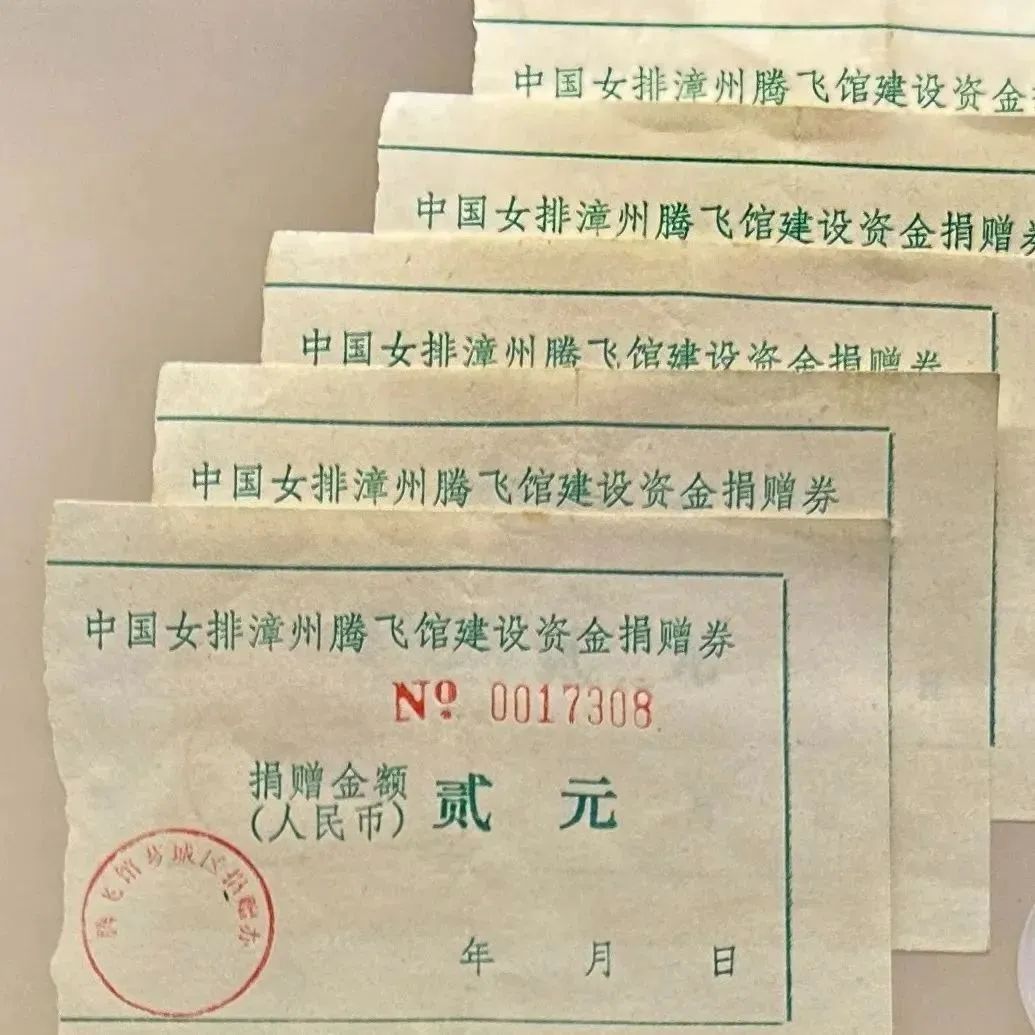 中国女排漳州腾飞馆建设资金
中国女排漳州腾飞馆建设资金捐赠券
中国女排漳州腾飞馆建设资金捐赠券
中国女排漳州腾飞馆建设资金捐赠券
中国女排漳州腾飞馆建设资金捐赠券
Nº 0017308
捐赠金额
(人民币)
贰 元
腾飞馆芗城区捐赠办
年 月 日